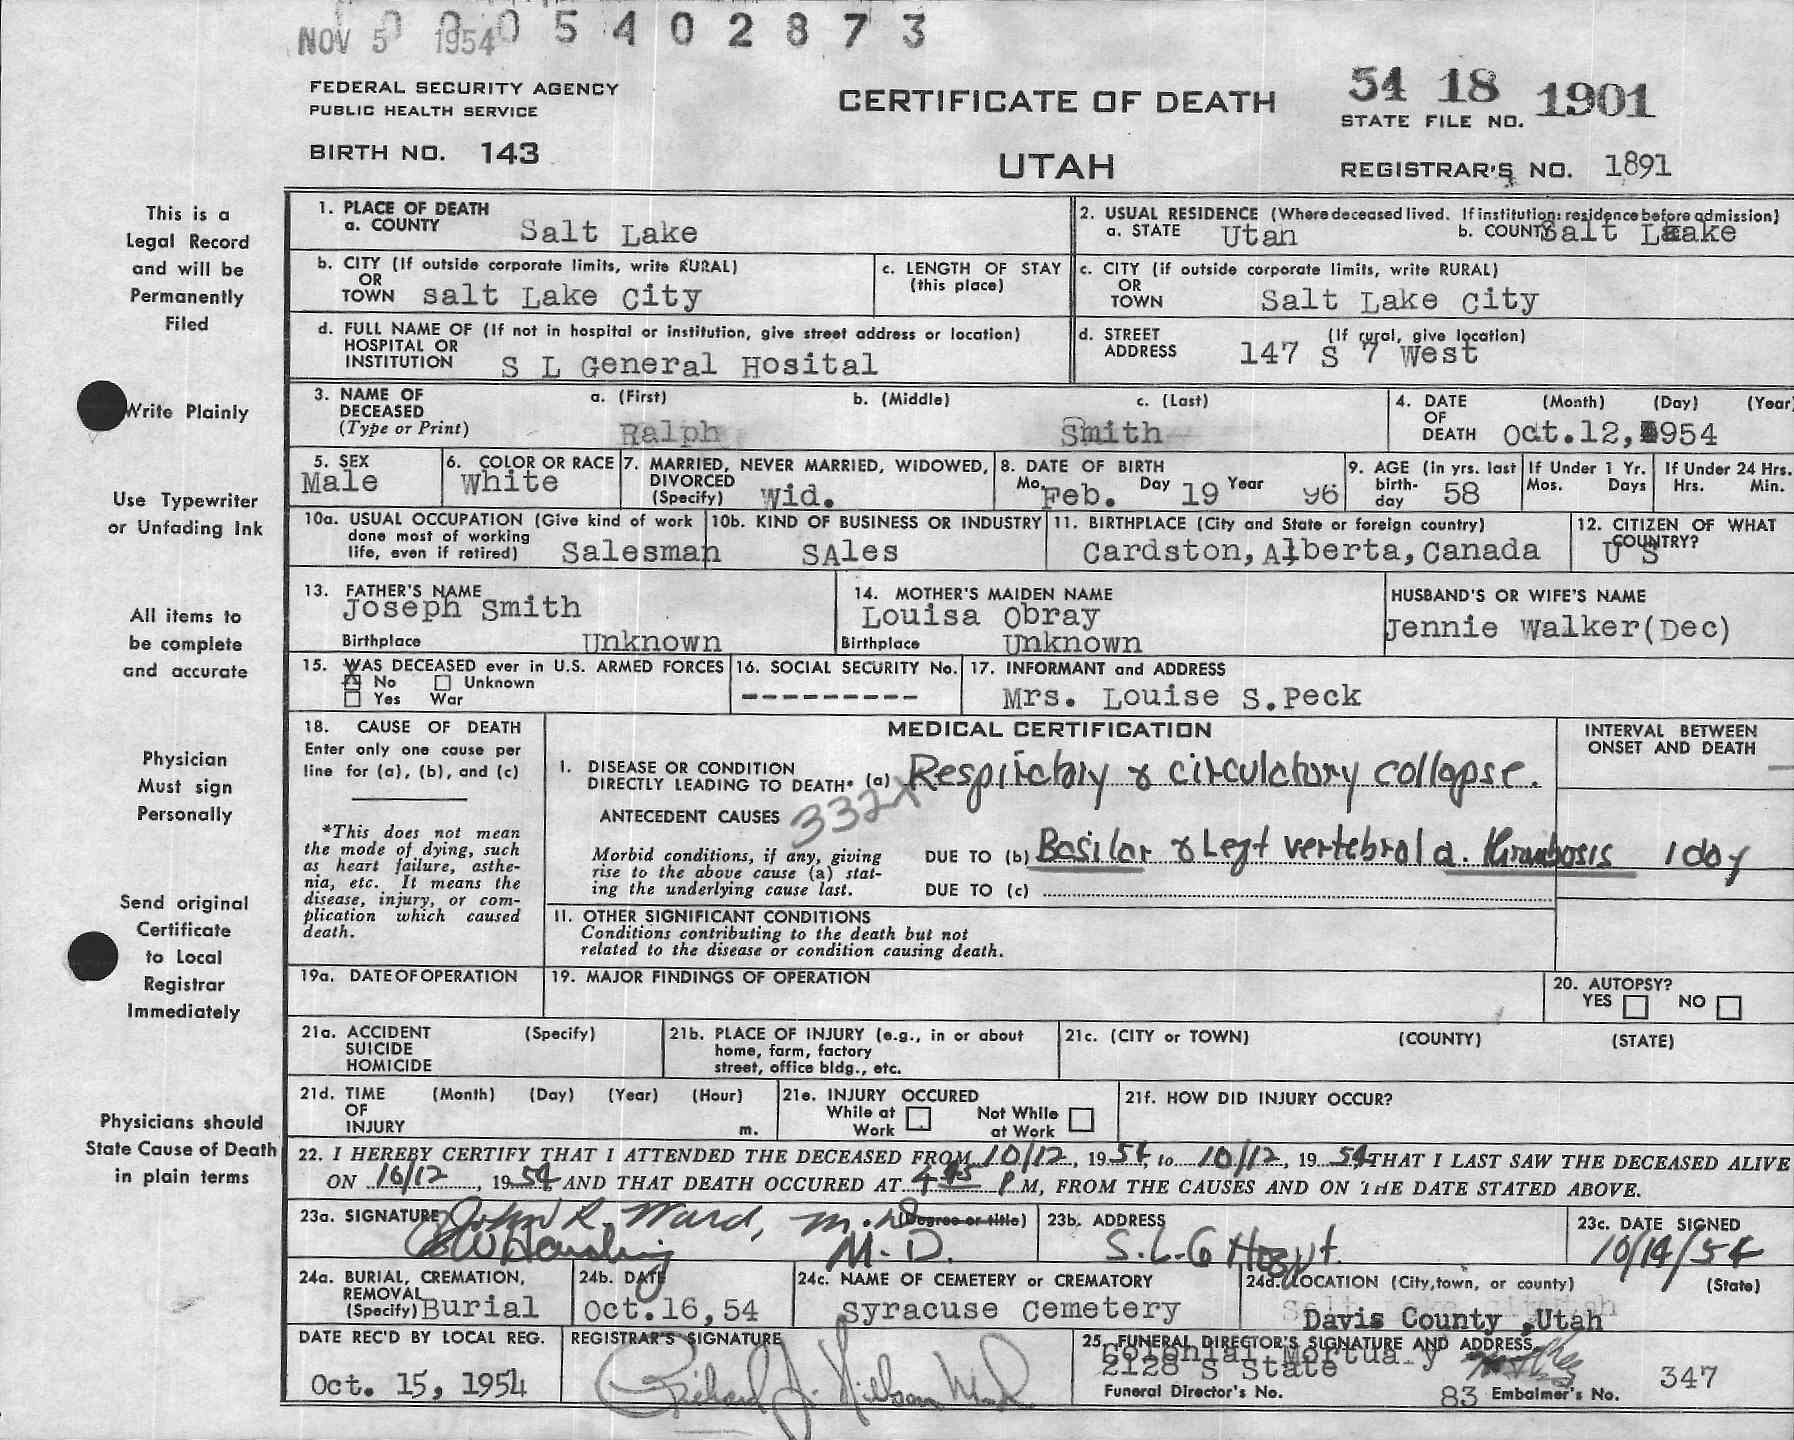 NOV 5 1954 0 5 4 0 2 8 7 3
FEDERAL SECURITY AGENCY
PUBLIC HEALTH SERVICE
BIRTH NO. 143
CERTIFICATE OF DEATH
UTAH
54 18 1901
STATE FILE NO.
REGISTRAR'S NO. 1891
This is a
Legal Record
and will be
Permanently
Filed
Write Plainly
Use Typewriter
or Unfading Ink
All items to
be complete
and accurate
Physician
Must sign
Personally
Send original
Certificate
to Local
Registrar
Immediately
Physicians should
State Cause of Death
in plain terms
1. PLACE OF DEATH
a. COUNTY Salt Lake
2. USUAL RESIDENCE (Where deceased lived. If institution: residence before admission)
a. STATE Utan b. COUNTY Salt Laake
b. CITY (If outside corporate limits, write RURAL)
OR
TOWN salt Lake City
c. LENGTH OF STAY
(this place)
c. CITY (if outside corporate limits, write RURAL)
OR
TOWN Salt Lake City
d. FULL NAME OF (If not in hospital or institution, give street address or location)
HOSPITAL OR
INSTITUTION S L General Hosital
d. STREET (If rural, give location)
ADDRESS 147 S 7 West
3. NAME OF a. (First) b. (Middle) c. (Last)
DECEASED
(Type or Print) Ralph Smith
4. DATE (Month) (Day) (Year)
OF
DEATH Oct.12, 1954
5. SEX
Male
6. COLOR OR RACE
White
7. MARRIED, NEVER MARRIED, WIDOWED,
DIVORCED
(Specify) Wid.
8. DATE OF BIRTH
Mo. Feb. Day 19 Year 96
9. AGE (in yrs. last
birth-
day 58
If Under 1 Yr.
Mos. Days
If Under 24 Hrs.
Hrs. Min.
10a. USUAL OCCUPATION (Give kind of work
done most of working
life, even if retired) Salesman
10b. KIND OF BUSINESS OR INDUSTRY
SAles
11. BIRTHPLACE (City and State or foreign country)
Cardston, Alberta, Canada
12. CITIZEN OF WHAT
COUNTRY?
U S
13. FATHER'S NAME
Joseph Smith
Birthplace Unknown
14. MOTHER'S MAIDEN NAME
Louisa Obray
Birthplace Unknown
HUSBAND'S OR WIFE'S NAME
Jennie Walker(Dec)
15. WAS DECEASED ever in U.S. ARMED FORCES
X No Unknown
Yes War
16. SOCIAL SECURITY No.
---------
17. INFORMANT and ADDRESS
Mrs. Louise S.Peck
18. CAUSE OF DEATH
Enter only one cause per
line for (a), (b), and (c)
*This does not mean
the mode of dying, such
as heart failure, asthe-
nia, etc. It means the
disease, injury, or com-
plication which caused
death.
MEDICAL CERTIFICATION
INTERVAL BETWEEN
ONSET AND DEATH
I. DISEASE OR CONDITION
DIRECTLY LEADING TO DEATH* (a) Respiratory & circulatory collapse.
332X
ANTECEDENT CAUSES
Morbid conditions, if any, giving
rise to the above cause (a) stat-
ing the underlying cause last.
DUE TO (b) Basilar & Left vertebral a. thrombosis 1 day
DUE TO (c)
II. OTHER SIGNIFICANT CONDITIONS
Conditions contributing to the death but not
related to the disease or condition causing death.
19a. DATE OF OPERATION
19. MAJOR FINDINGS OF OPERATION
20. AUTOPSY?
YES NO
21a. ACCIDENT (Specify)
SUICIDE
HOMICIDE
21b. PLACE OF INJURY (e.g., in or about
home, farm, factory
street, office bldg., etc.
21c. (CITY or TOWN) (COUNTY) (STATE)
21d. TIME (Month) (Day) (Year) (Hour)
OF
INJURY m.
21e. INJURY OCCURED
While at Not While
Work at Work
21f. HOW DID INJURY OCCUR?
22. I HEREBY CERTIFY THAT I ATTENDED THE DECEASED FROM 10/12, 1954, to 10/12, 1954, THAT I LAST SAW THE DECEASED ALIVE
ON 10/12, 1954 AND THAT DEATH OCCURED AT 4 45 P M, FROM THE CAUSES AND ON THE DATE STATED ABOVE.
23a. SIGNATURE John R. Ward, M.D. (Degree or title)
M.D.
23b. ADDRESS
S.L.G Hospt.
23c. DATE SIGNED
10/14/54
24a. BURIAL, CREMATION,
REMOVAL
(Specify) Burial
24b. DATE
Oct.16,54
24c. NAME OF CEMETERY or CREMATORY
Syracuse Cemetery
24d. LOCATION (City, town, or county) (State)
Davis County, Utah
DATE REC'D BY LOCAL REG.
Oct. 15, 1954
REGISTRAR'S SIGNATURE
Richard J.
25. FUNERAL DIRECTOR'S SIGNATURE AND ADDRESS
Colonial Mortuary
2128 S State
Funeral Director's No. 83 Embalmer's No. 347